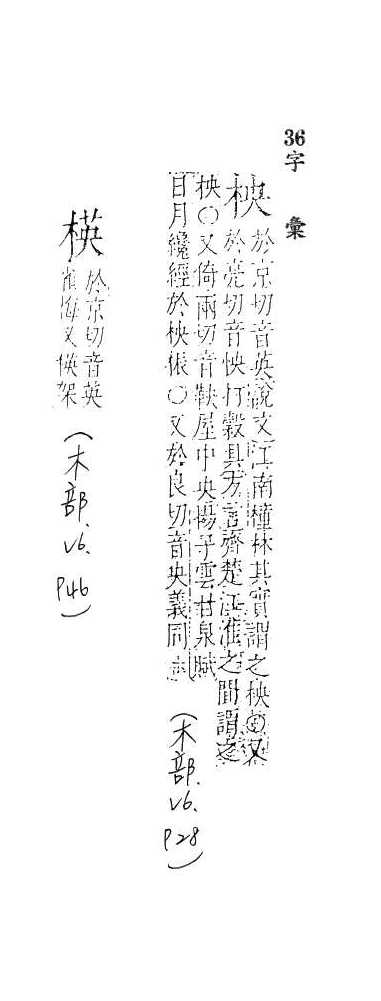 36 字彙
柍 於京切音英說文江南橦林其實謂之柍○又
於亮切音怏打穀具方言齊楚江淮之間謂之
柍○又倚兩切音鞅屋中央揚子雲甘泉賦
日月纔經於柍桭○又於良切音央義同
(木部. V6. P28)
楧 於京切音英
梅又楧架
(木部. V6. P46)